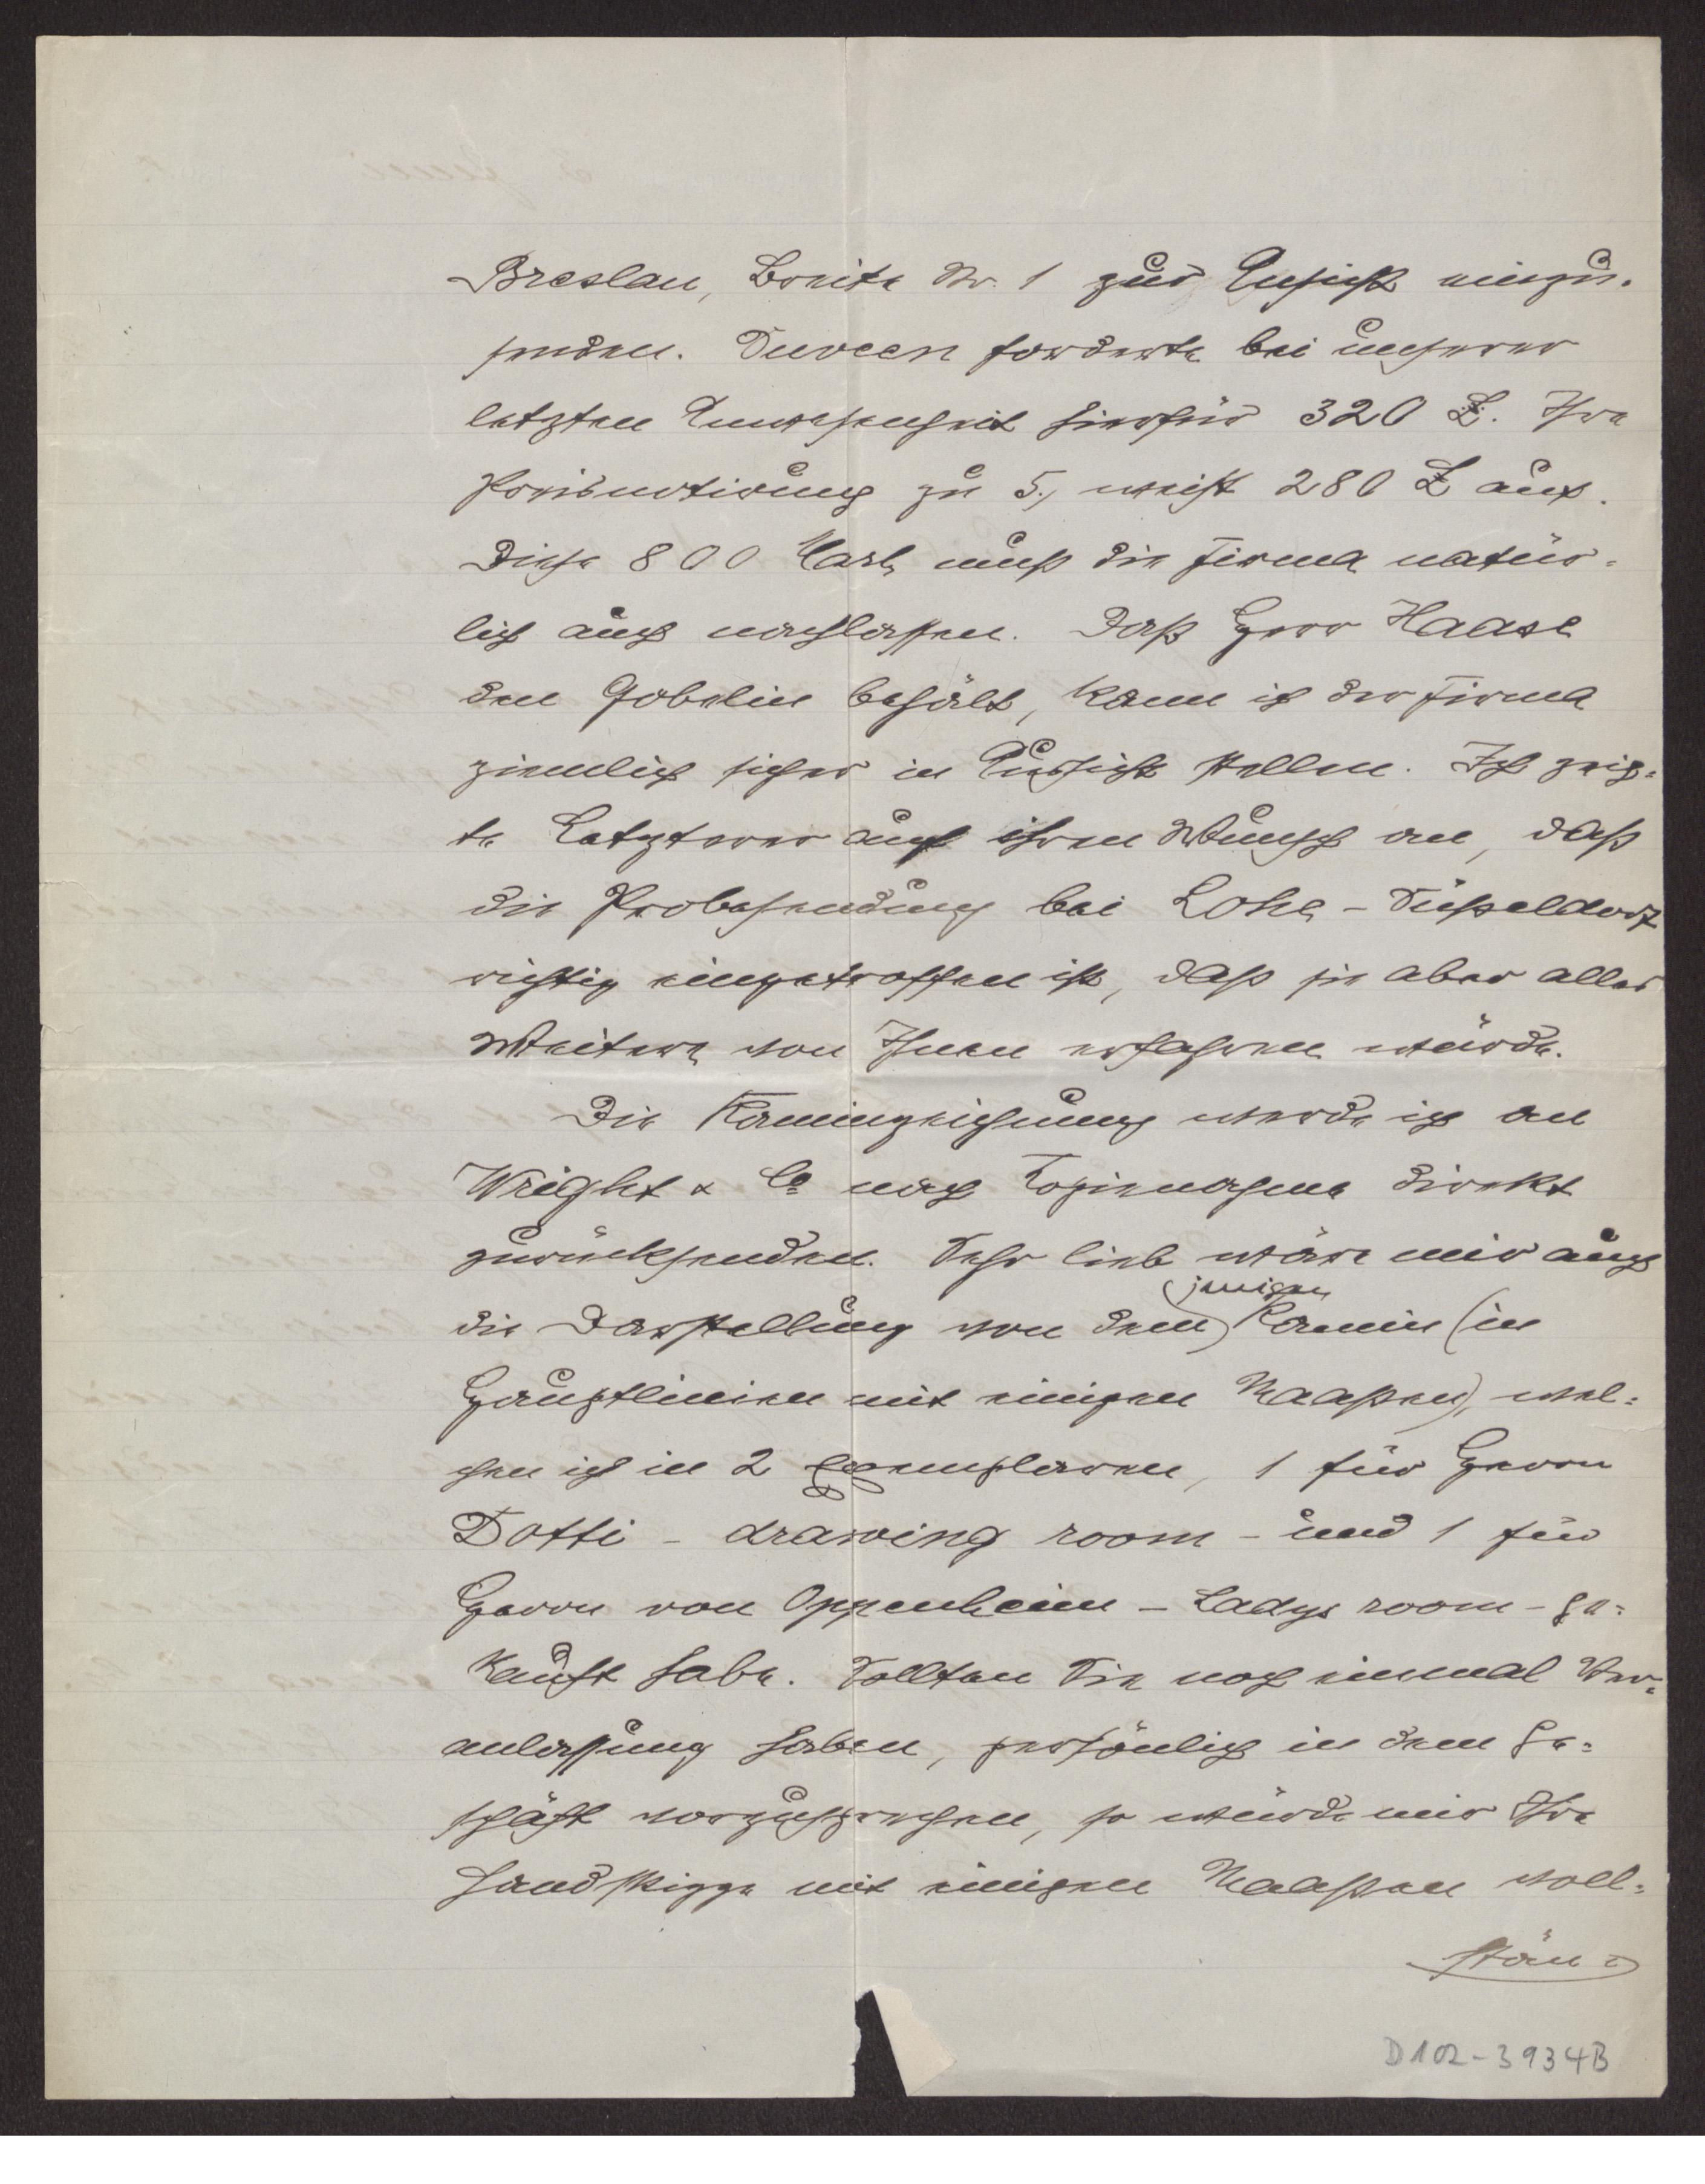 Breslau, Breite Nr. 1 zur Ansicht einzu-
senden. Duveen forderte bei unserer
letzten Anwesenheit hierfür 320 £. Ihre
Preisnotirung zu 5., weist 280 £ auf.
Diese 800 Mark muß die Firma natür-
lich auch nachlassen. Daß Herr Haase
den Gobelin behält, kann ich der Firma
ziemlich sicher in Aussicht stellen. Ich zeig-
te Letzterer auf ihren Wunsch an, daß
die Probesendung bei Lohe - Düsseldorf
richtig eingetroffen ist, daß sie aber alles
Weitere von Ihnen erfahren würde.
Die Kaminzeichnung werde ich an
Wright & Co nach Kopienahme direkt
zurücksenden. Sehr lieb wäre mir auch
jenigen
die Darstellung von dem Kamin (in
Hauptlinien mit einigen Maaßen), wel-
chen ich in 2 Exemplaren, 1 für Herrn
Dotti - drawing room - und 1 für
Herrn von Oppenheim - Ladys room - ge-
kauft habe. Sollten Sie noch einmal Ver-
anlassung haben, persönlich in dem Ge-
schäft vorzusprechen, so würde mir Ihre
Handskizze mit einigen Maaßen voll-
stän-
D102-3934B